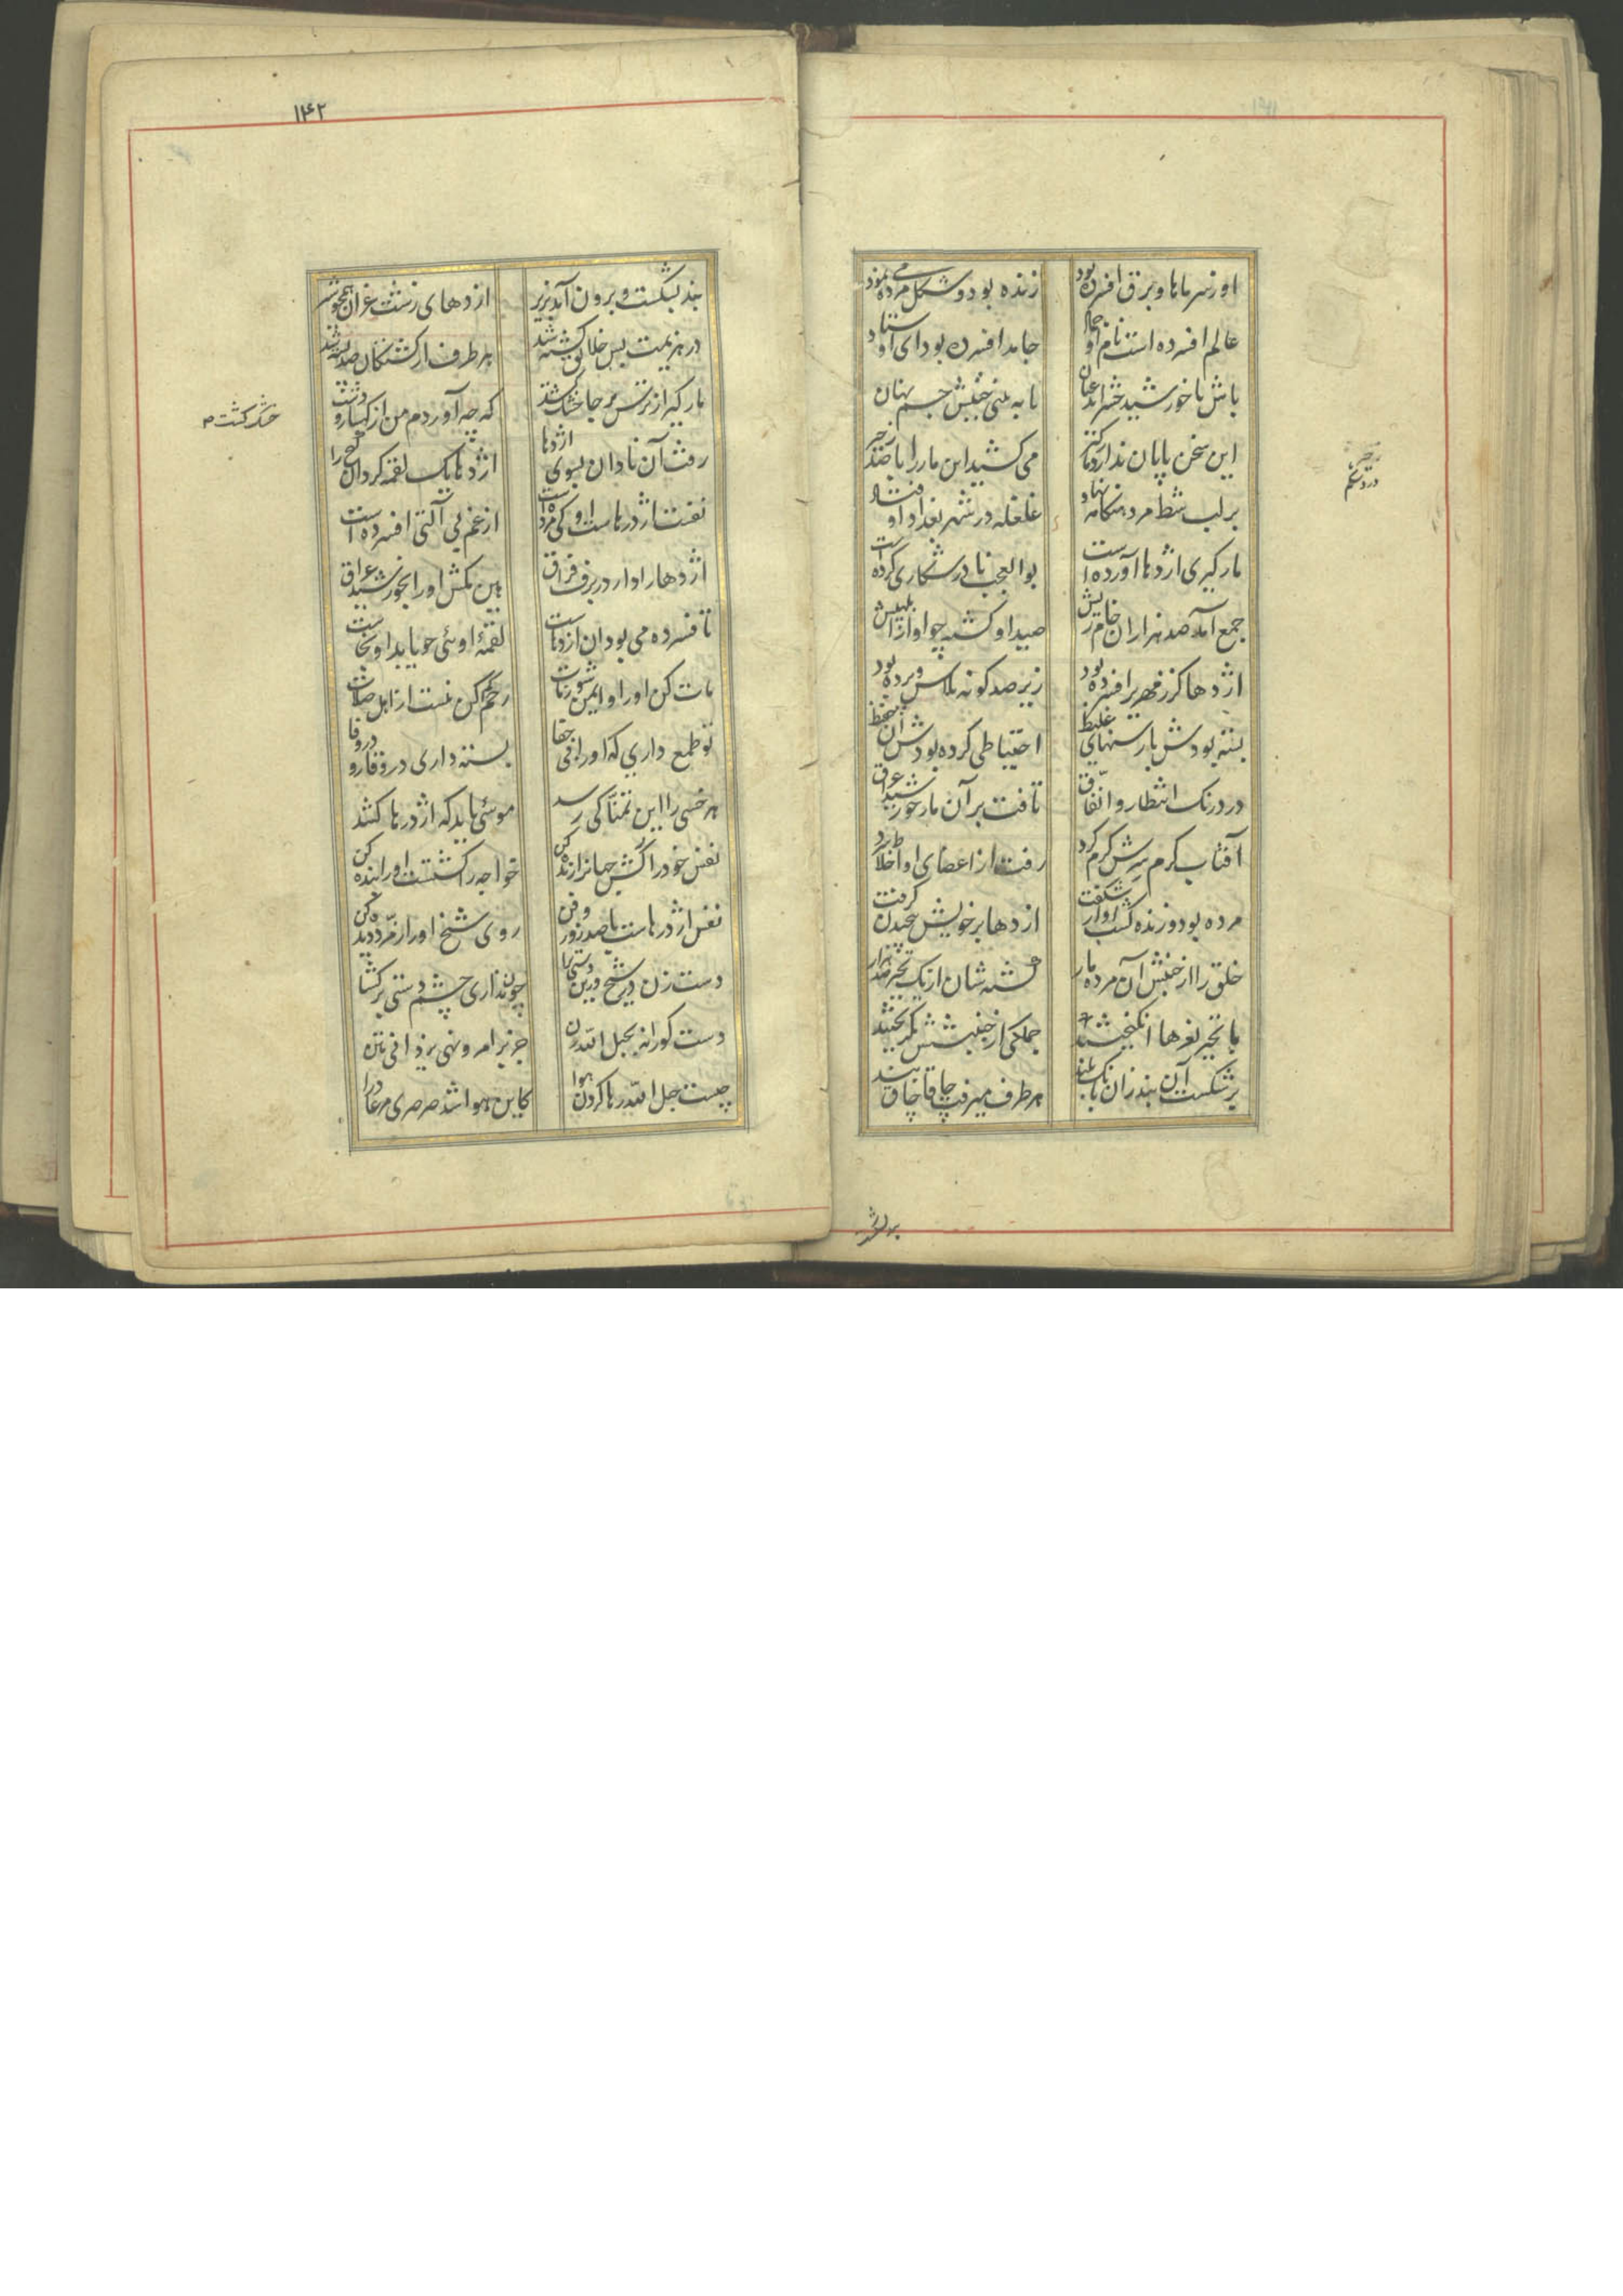 ۱۴۱
او ز سرماها و برق افسرده بود
زنده بود و شکل مرده می نمود
عالم افسرده است نام او جماد
جامد افسرده بود ای اوستاد
باش تا خورشید حشر آید عیان
تا به بینی جنبش جسم جهان
این سخن پایان ندارد
می کشید این مار را با صد زحیر
بر لب شط مرد هنگامه نهاد
غلغله در شهر بغداد اوفتاد
مارگیری اژدها آورده است
بوالعجب نادر شکاری کرده است
جمع آمد صد هزاران خام ریش
صید او گشته چو او از ابلهیش
اژدها کز زمهریر افسرده بود
زیر صد گونه پلاس و پرده بود
بسته بودش با رسنهای غلیظ
احتیاطی کرده بودش آن حفیظ
در درنگ انتظار و اتفاق
تافت بر آن مار خورشید عراق
آفتاب گرم سیرش گرم کرد
رفت از اعضای او اخلاط سرد
مرده بود و زنده گشت او از شگفت
اژدها بر خویش جنبیدن گرفت
خلق را از جنبش آن مرده مار
گشته شان از یک تحیر صد هزار
با تحیر نعرها انگیختند
جملگی از جنبشش بگریختند
بر شکست آن بند زان بانگ بلند
هر طرف میرفت چاقاچاق بند
۱۴۲
بند بشکست و برون آمد ز زیر
اژدهای زشت غران همچو شیر
در هزیمت بس خلایق کشته شد
هر طرف از کشتگان صد پشته شد
مارگیر از ترس بر جا خشک شد
که چه آوردم من از کهسار و دشت
خشک گشت
رفت آن نادان بسوی اژدها
اژدها یک لقمه کرد آن گیج را
نفست اژدرهاست او کی مرده است
از غم بی آلتی افسرده است
اژدها را دار در برف فراق
هین مکش او را بخورشید عراق
تا فسرده می بود آن اژدهات
لقمهٔ اوئی چو یابد او نجات
مات کن او را و ایمن شو ز مات
رحم کن نیست از اهل صلات
تو طمع داری که او را بی جفا
بسته داری در وقار و در وفا
هر خسی را این تمنا کی رسد
موسئی باید که اژدرها کشد
نفس خود را کش جهانرا زنده کن
خواجه را کشتست او را بنده کن
نفس اژدرهاست با صد زور و فن
روی شیخ او را زمرد دیده کن
دست زن در شیخ
چون نداری چشم دستی بر گشا
دست کورانه بحبل الله زن
جز بر امر و نهی یزدانی متن
چیست حبل الله رها کردن هوا
کاین هوا شد صرصری مر عاد را